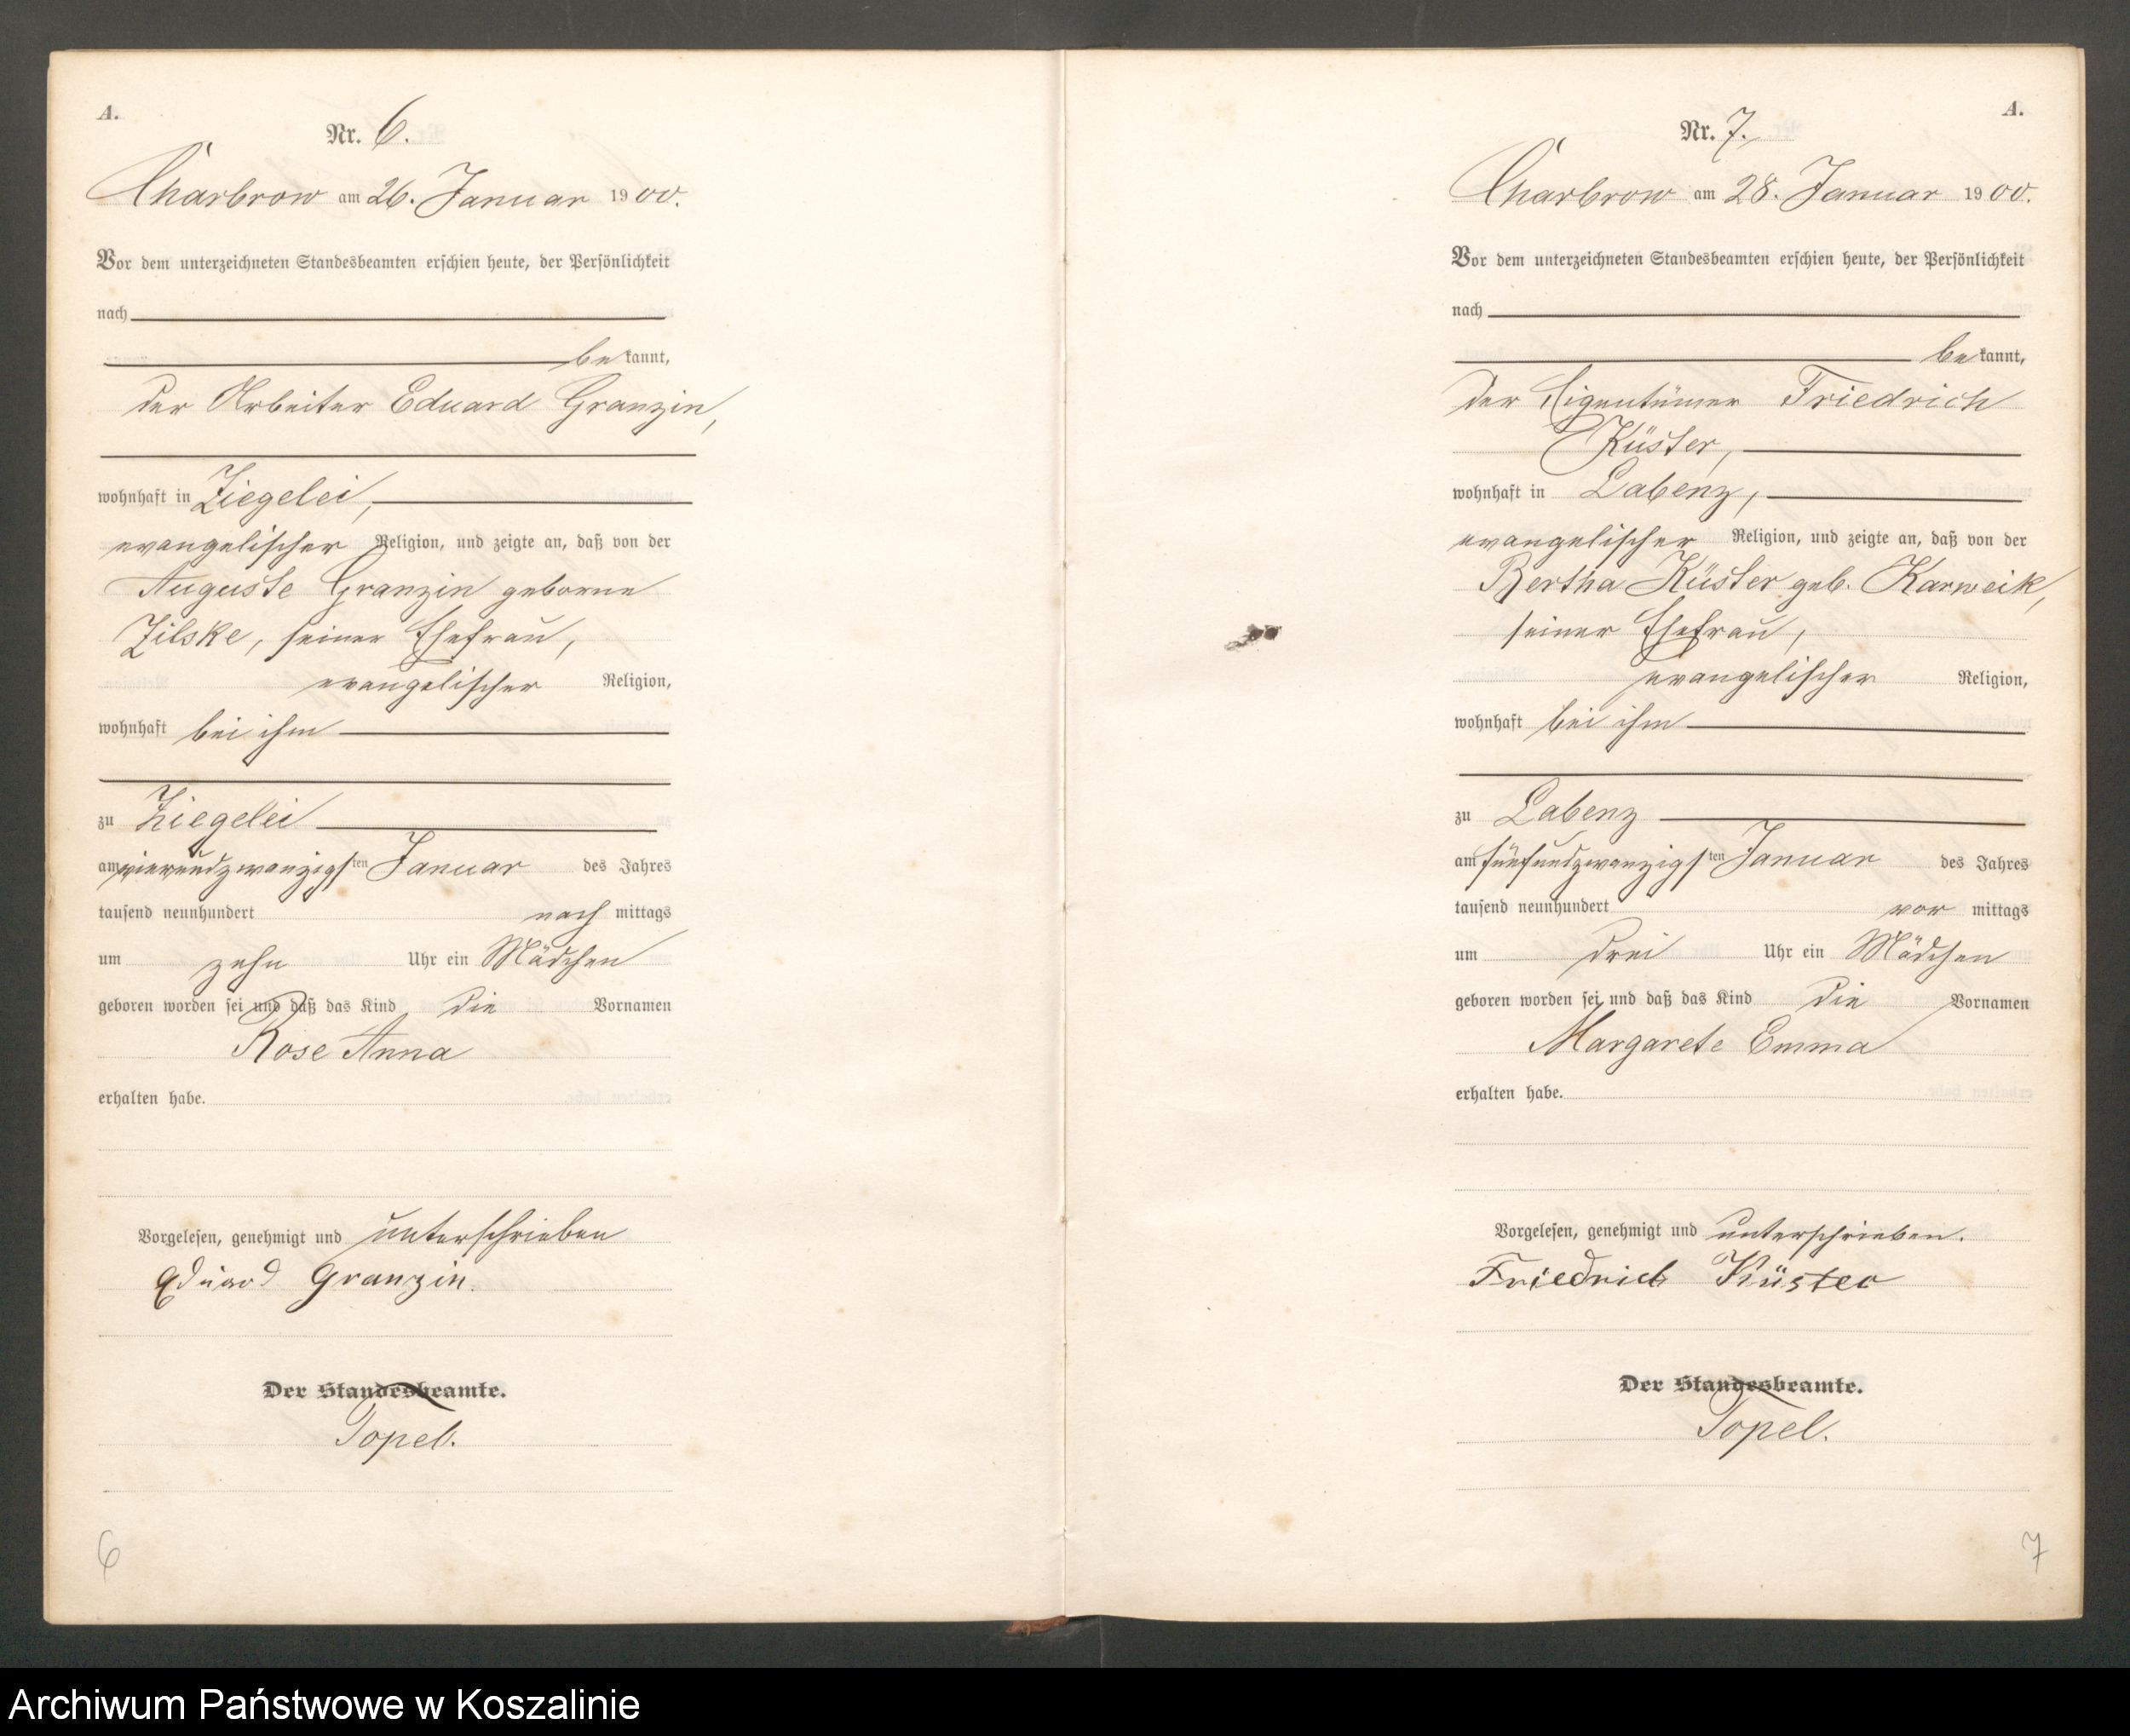 A.
Nr. 6.
Charbrow am 26. Januar 1900.
Vor dem unterzeichneten Standesbeamten erschien heute, der Persönlichkeit
nach
bekannt,
der Arbeiter Eduard Granzin,
wohnhaft in Ziegelei,
evangelischer Religion, und zeigte an, daß von der
Auguste Granzin geborne
Zilske, seiner Ehefrau,
evangelischer Religion,
wohnhaft bei ihm
zu Ziegelei
am vierundzwanzigsten Januar des Jahres
tausend neunhundert nach mittags
um zehn Uhr ein Mädchen
geboren worden sei und daß das Kind die Vornamen
Rose Anna
erhalten habe.
Vorgelesen, genehmigt und unterschrieben
Eduard Granzin.
Der Standesbeamte.
Topel.
6
A.
Nr. 7.
Charbrow am 28. Januar 1900.
Vor dem unterzeichneten Standesbeamten erschien heute, der Persönlichkeit
nach
bekannt,
der Eigentümer Friedrich
Küster,
wohnhaft in Labenz,
evangelischer Religion, und zeigte an, daß von der
Bertha Küster geb. Karweik,
seiner Ehefrau,
evangelischer Religion,
wohnhaft bei ihm
zu Labenz
am fünfundzwanzigsten Januar des Jahres
tausend neunhundert vor mittags
um drei Uhr ein Mädchen
geboren worden sei und daß das Kind die Vornamen
Margarete Emma
erhalten habe.
Vorgelesen, genehmigt und unterschrieben.
Friedrich Küster
Der Standesbeamte.
Topel.
7
Archiwum Państwowe w Koszalinie